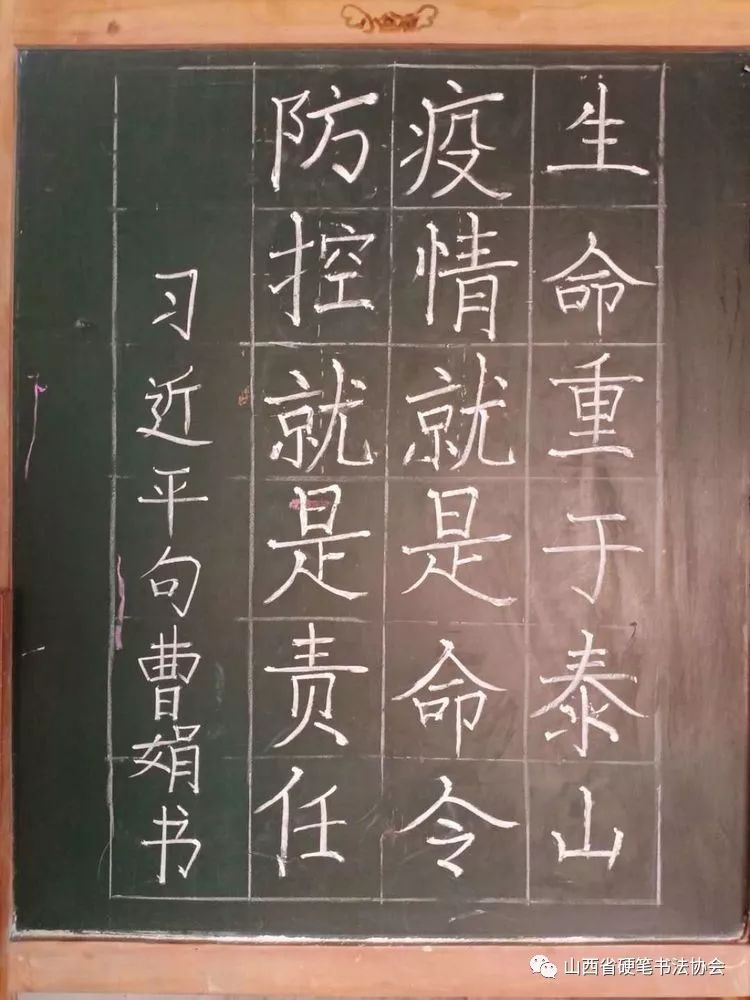 生命重于泰山
疫情就是命令
防控就是责任
习近平句曹娟书
山西省硬笔书法协会